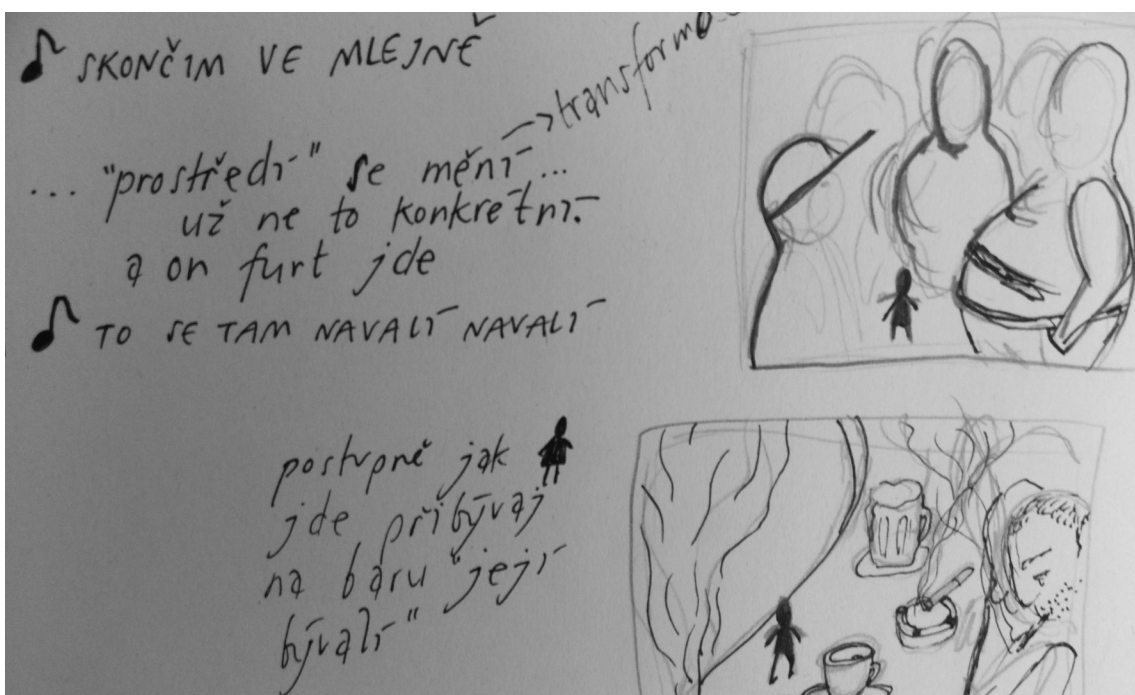 SKONČIM VE MLEJNĚ
... "prostředí" se mění... →
už ne to konkrétní.
a on furt jde
TO SE TAM NAVALÍ NAVALÍ
postupně jak
jde přibývaj
na baru "její
bývalí"